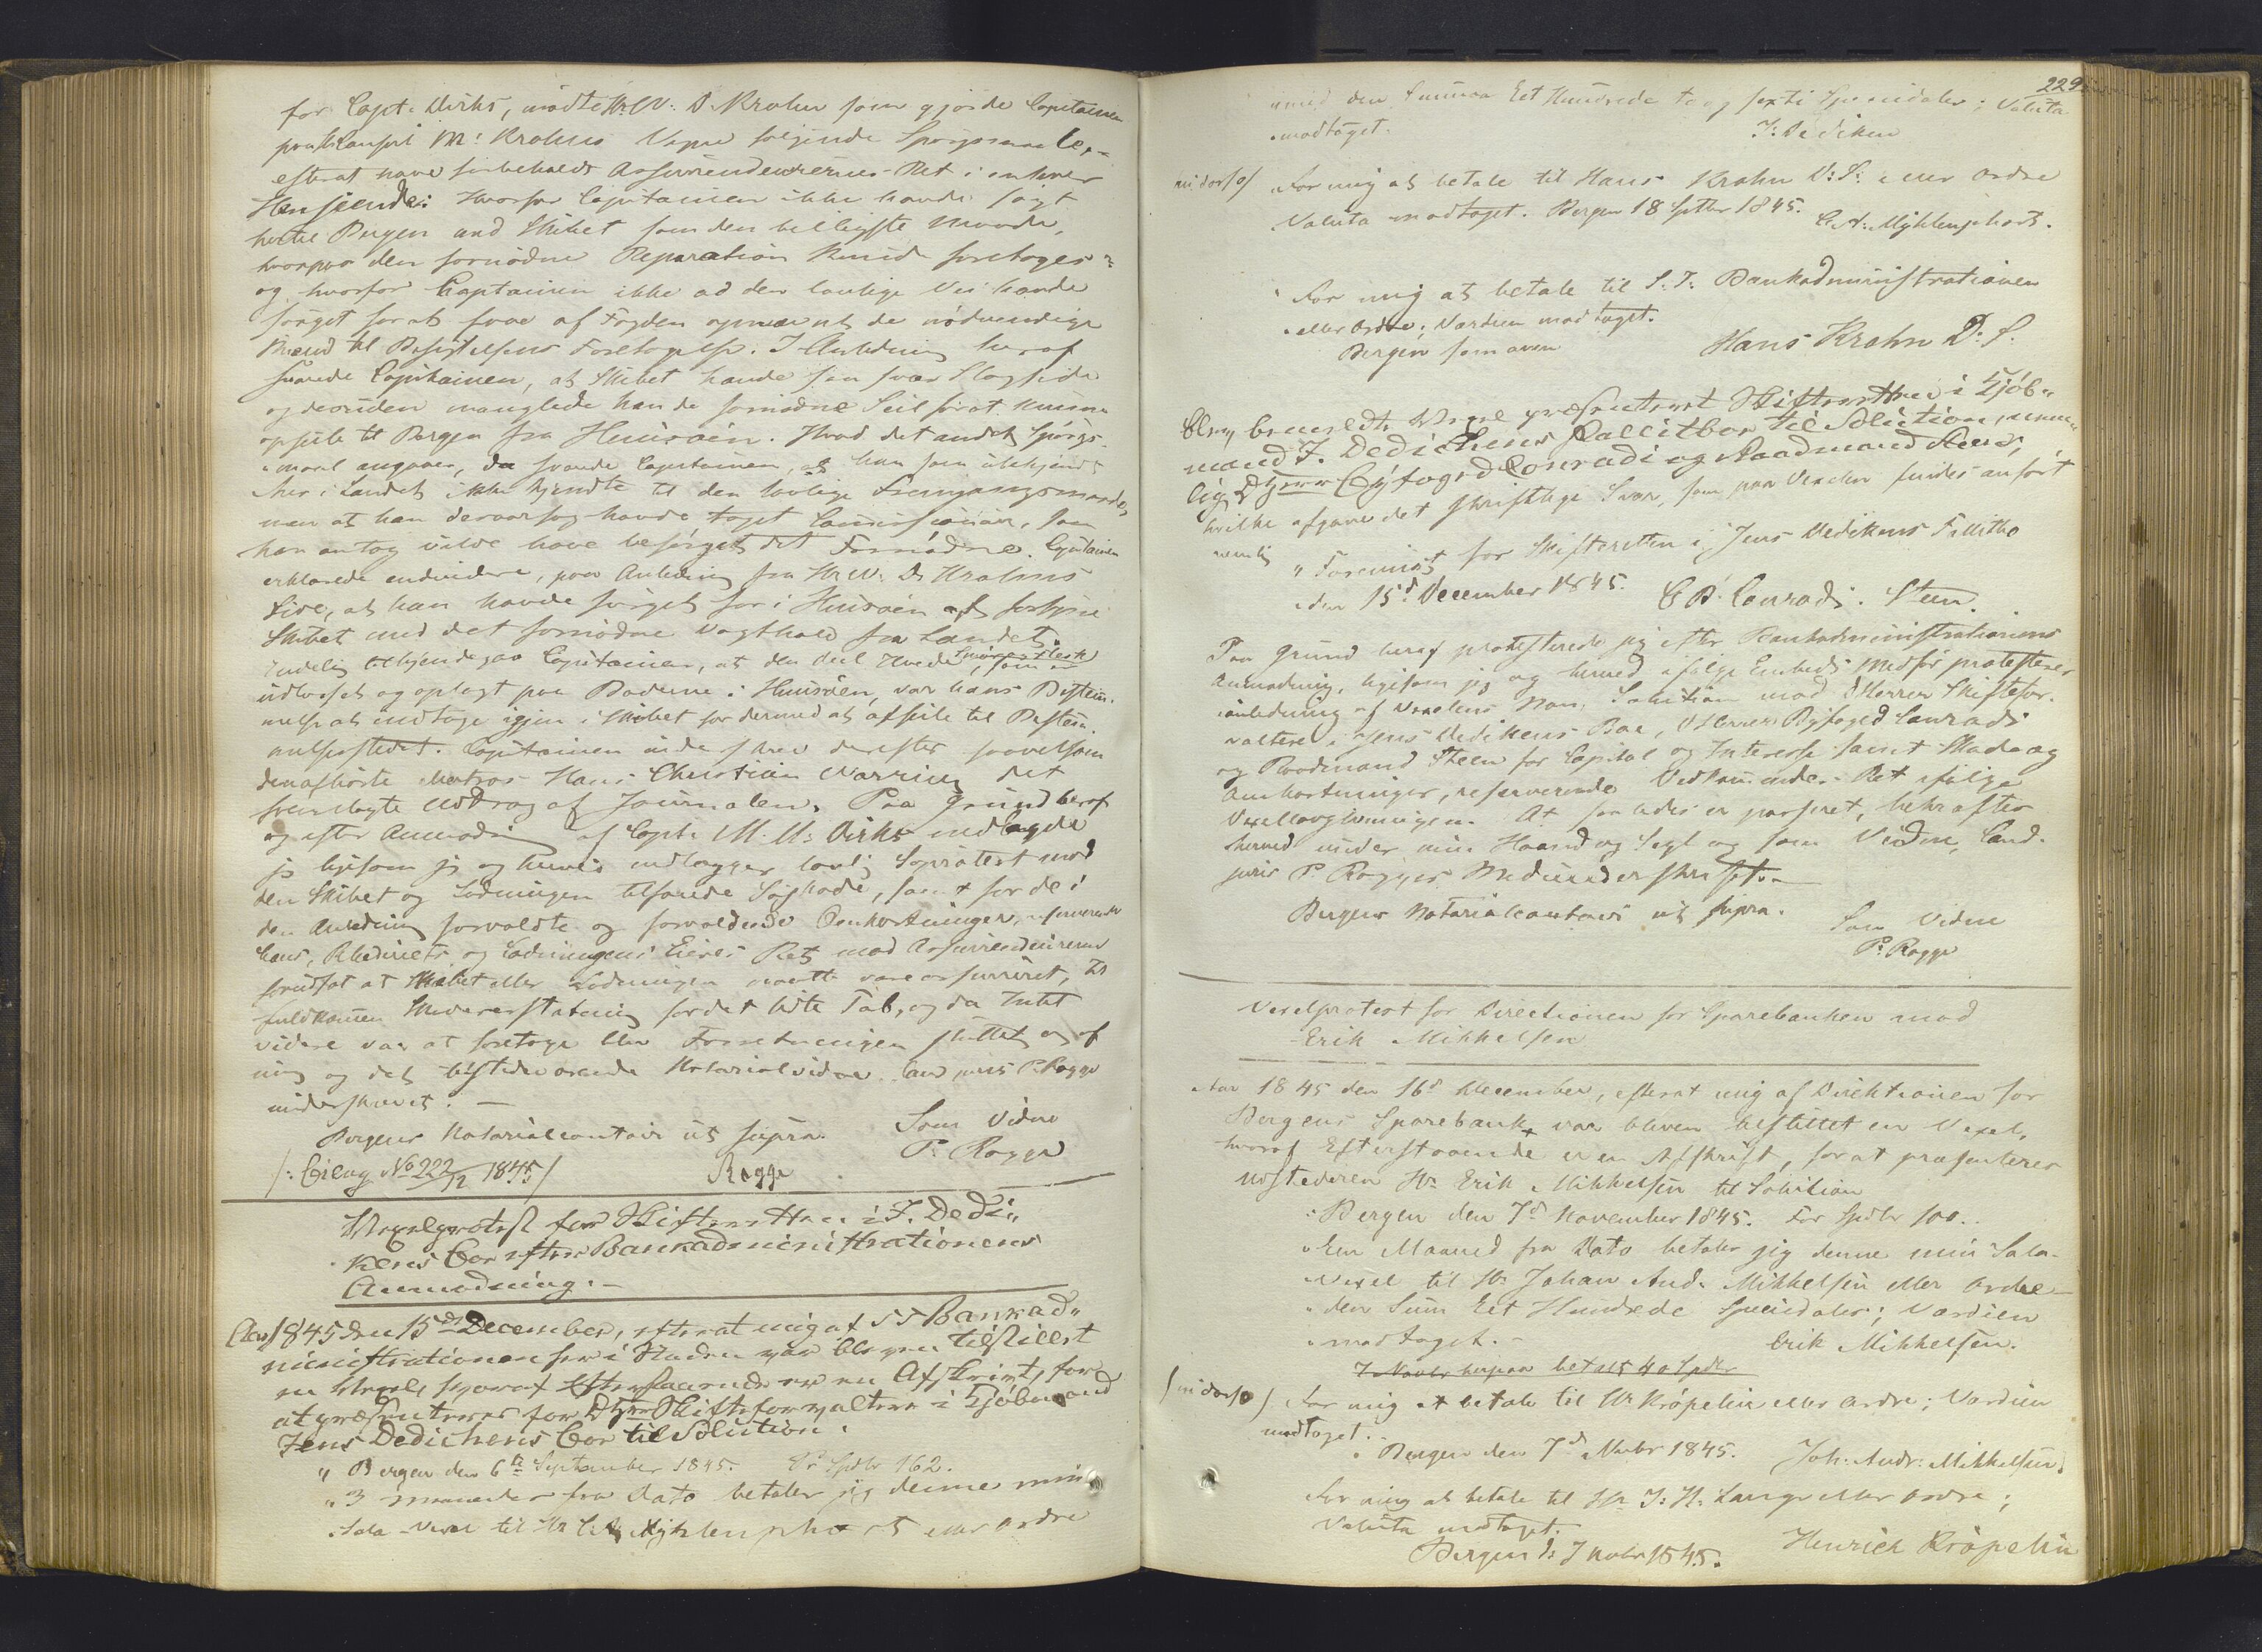 for Capt. Dirks, mödte Hr. W. D. Krohn som gjorde Capitainen
paa Consul M: Krohns Vegne følgende Spørgsmaale,
efterat have forbeholdt Assurandeurernes Ret i enhver
Henseende: Hvorfor Capitainen ikke havde søgt
hertil Bergen med Skibet som den billigste Maade,
hvorpaa den fornødne Reparation kunde foretages
og hvorfor Captainen ikke ad den lovlige Vei havde
sörget for at faae af Fogden opnævnt de nödvendige
Mænd til Besigtelsens Foretagelse. I Anledning heraf
svarede Capitainen, at Skibet havde saa svær Slagside
og desuden manglede han de fornødne Seil for at kunne
opseile til Bergen fra Huusöen. Hvad det andet Spörgs-
maal angaaer, da svarede Capitainen, at han som ubekjendt
her i Landet ikke kjendte til den lovlige Fremgangsmaade,
men at han derover havde taget Commissionair, som
han antog vilde have besørget det Fornødne. Capitainen
erklærede endvidere, paa Anledning fra Hr. W. D. Krohns
Side, at han havde sørget for i Huusöen at forsyne
Skibet med det fornødne Vagthold fra Landet.
Endelig tilkjendegav Capitainen, at den deel Hvede, Smør og Flesk som
udlosset og oplagt paa Boderne i Huusöen, var hans Bestem-
melse at indtage igjen i Skibet for dermed at afseile til Bestem-
melsesstedet. Capitainen underskrev derefter saavelsom
den afhörte Matros Hans Christian Warrier det
fremlagte Uddrag af Journalen. Paa Grund heraf
og efter Anmodning af Capt. M. M. Dirks indlagde
jeg ligesom jeg og herved indlægger lovlig Søprotest mod
den Skibet og Ladningen tilføiede Søskade, samt for de i
den Anledning forvoldte og forvoldende Omkostninger, reserverende
hans, Rhederiets og Ladningens Eiers Ret mod Assurandeurerne
forudsat at Skibet eller Ladningen maatte være assureret, til
fuldkommen Skadeserstatning for det lidte Tab, og da Intet
videre var at foretage blev Forretningen sluttet og af
mig og det tilstedeværende Notarialvidne Cand. juris P. Rogge
underskrevet. —
Bergens Notarialcontoir ut supra.
Som Vidne
P. Rogge
/: Bilag No 222/12 1845 /
Rogge
Vexelprotest for Skifteretten i J. Dedi-
kens Boe efter Bankadministrationens
Anmodning. —
Aar 1845 den 15de December, efterat mig af S T Bankad-
ministrationen her i Staden var bleven tilstillet
en Vexel, hvoraf Efterstaaende er en Afskrivt, for
at præsenteres for DHrr Skifteforvaltere i Kjöbmand
Jens Dedichens Boe til Solution.
" Bergen den 6te September 1845. Pr Spdlr 162.
" 3 Maaneder fra Dato betaler jeg denne min
" Sola-Vexel til Hr C. A. Myhlenphort eller Ordre
229.
" med den Summa Eet Hundrede to og sexti Speciedaler; Valuta
" modtaget.
J. Dediken
in dorso/ For mig at betale til Hans Krohn D: S: eller Ordre
Valuta modtaget. Bergen 18 Septbr 1845.
C. A. Myhlenphort.
" For mig at betale til S. T. Bankadministrationen
" eller Ordre; Værdien modtaget.
Bergen som oven
Hans Krohn D: S.
Blev bemeldte Vexel præsenteret Skifteretten i Kjöb-
mand J. Dedichens Fallitboe til Solution, nem-
lig DHerrer Byfoged Conradi og Raadmand Steen,
hvilke afgave det skriftlige Svar, som paa Vexelen findes anført
nemlig
" Foreviist for Skifteretten i Jens Dedikens Fallitbo
" den 15d December 1845. C B. Conradi. Steen.
Paa Grund heraf protesterede jeg efter Bankadministrationens
Anmodning, ligesom jeg og herved ifølge Embeds Medfør protesterer
i anledning af Vexelens Non Solution mod DHerrer Skiftefor-
valtere i Jens Dedikens Boe, DHerrer Byfoged Conradi
og Raadmand Steen for Capital og Interesse samt Skade og
Omkostninger, reserverende Vedkommendes Ret ifølge
Vexellovgivningen. At saaledes er passeret, bekræftes
herved under min Haand og Segl og som Vidne, Cand.
juris P. Rogges Medunderskrift. —
Bergens Notarialcontoir ut supra.
Som Vidne
P. Rogge
Vexelprotest for Directionen for Sparebanken mod
Erik Mikkelsen
Aar 1845 den 16d December, efterat mig af Direktionen for
Bergens Sparebank var bleven tilstillet en Vexel,
hvoraf Efterstaaende er en Afskrift, for at præsenteres
Udstederen Hr. Erik Mikkelsen til Solution
" Bergen den 7d November 1845. For Spdlr 100..
" Een Maaned fra Dato betaler jeg denne min Sola-
" Vexel til Hr Johan And. Mikkelsen eller Ordre
" den Sum Eet Hundrede Speciedaler; Værdien
" modtaget. —
Erik Mikkelsen.
7 Novbr herpaa betalt 40 Spdlr
(in dorso) For mig at betale til Hr Kröpelin eller Ordre; Værdien
modtaget.
Bergen den 7d Novbr 1845.
Joh: Andr: Mikkelsen.
For mig at betale til Hr J: H: Lange eller Ordre;
Valuta modtaget.
Bergen d. 7 Novbr 1845.
Henrich Kröpelin